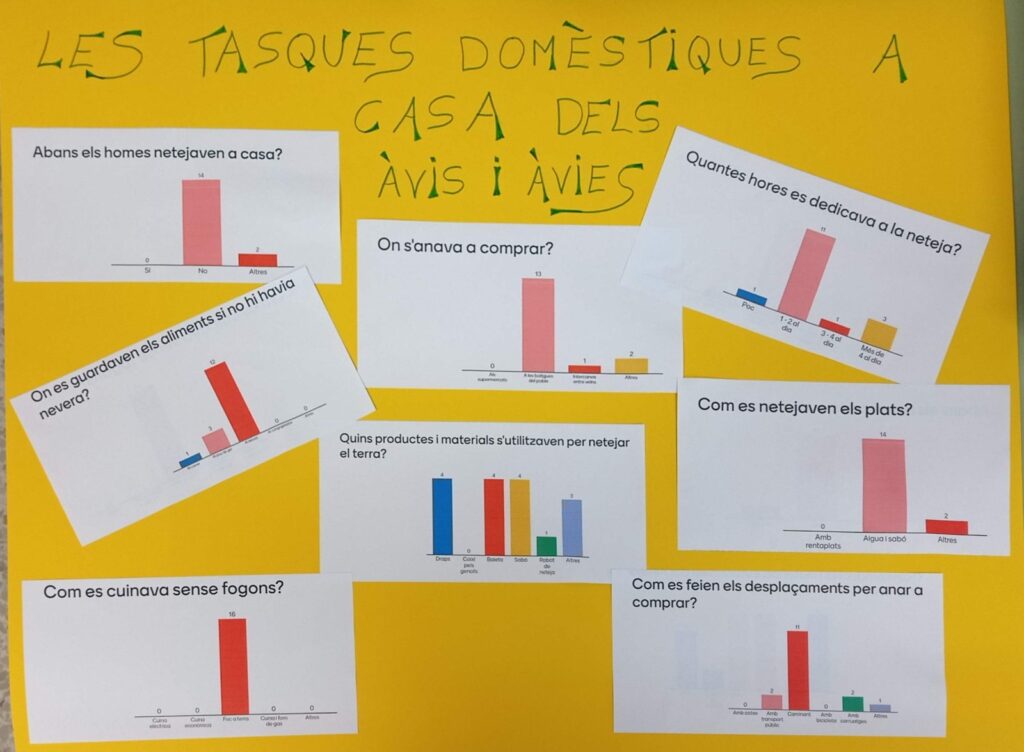 LES TASQUES DOMÈSTIQUES A
CASA DELS
ÀVIS I ÀVIES
Abans els homes netejaven a casa?
0
14
2
Sí
No
Altres
On s'anava a comprar?
0
13
1
2
Als
supermercats
A les botigues
del poble
Intercanvis
entre veïns
Altres
Quantes hores es dedicava a la neteja?
1
11
1
3
Poc
1 - 2 al
dia
3 - 4 al
dia
Més de
4 al dia
On es guardaven els aliments si no hi havia
nevera?
1
3
12
0
0
Quins productes i materials s'utilitzaven per netejar
el terra?
4
0
4
4
1
3
Draps
Coixí
pels
genolls
Baieta
Sabó
Robot
de
neteja
Altres
Com es netejaven els plats?
0
14
2
Amb
rentaplats
Aigua i sabó
Altres
Com es cuinava sense fogons?
0
0
16
0
0
Cuina
elèctrica
Cuina
econòmica
Foc a terra
Cuina i forn
de gas
Altres
Com es feien els desplaçaments per anar a
comprar?
0
2
11
0
2
1
Amb cotxe
Amb
transport
públic
Caminant
Amb
bicicleta
Amb
carruatges
Altres